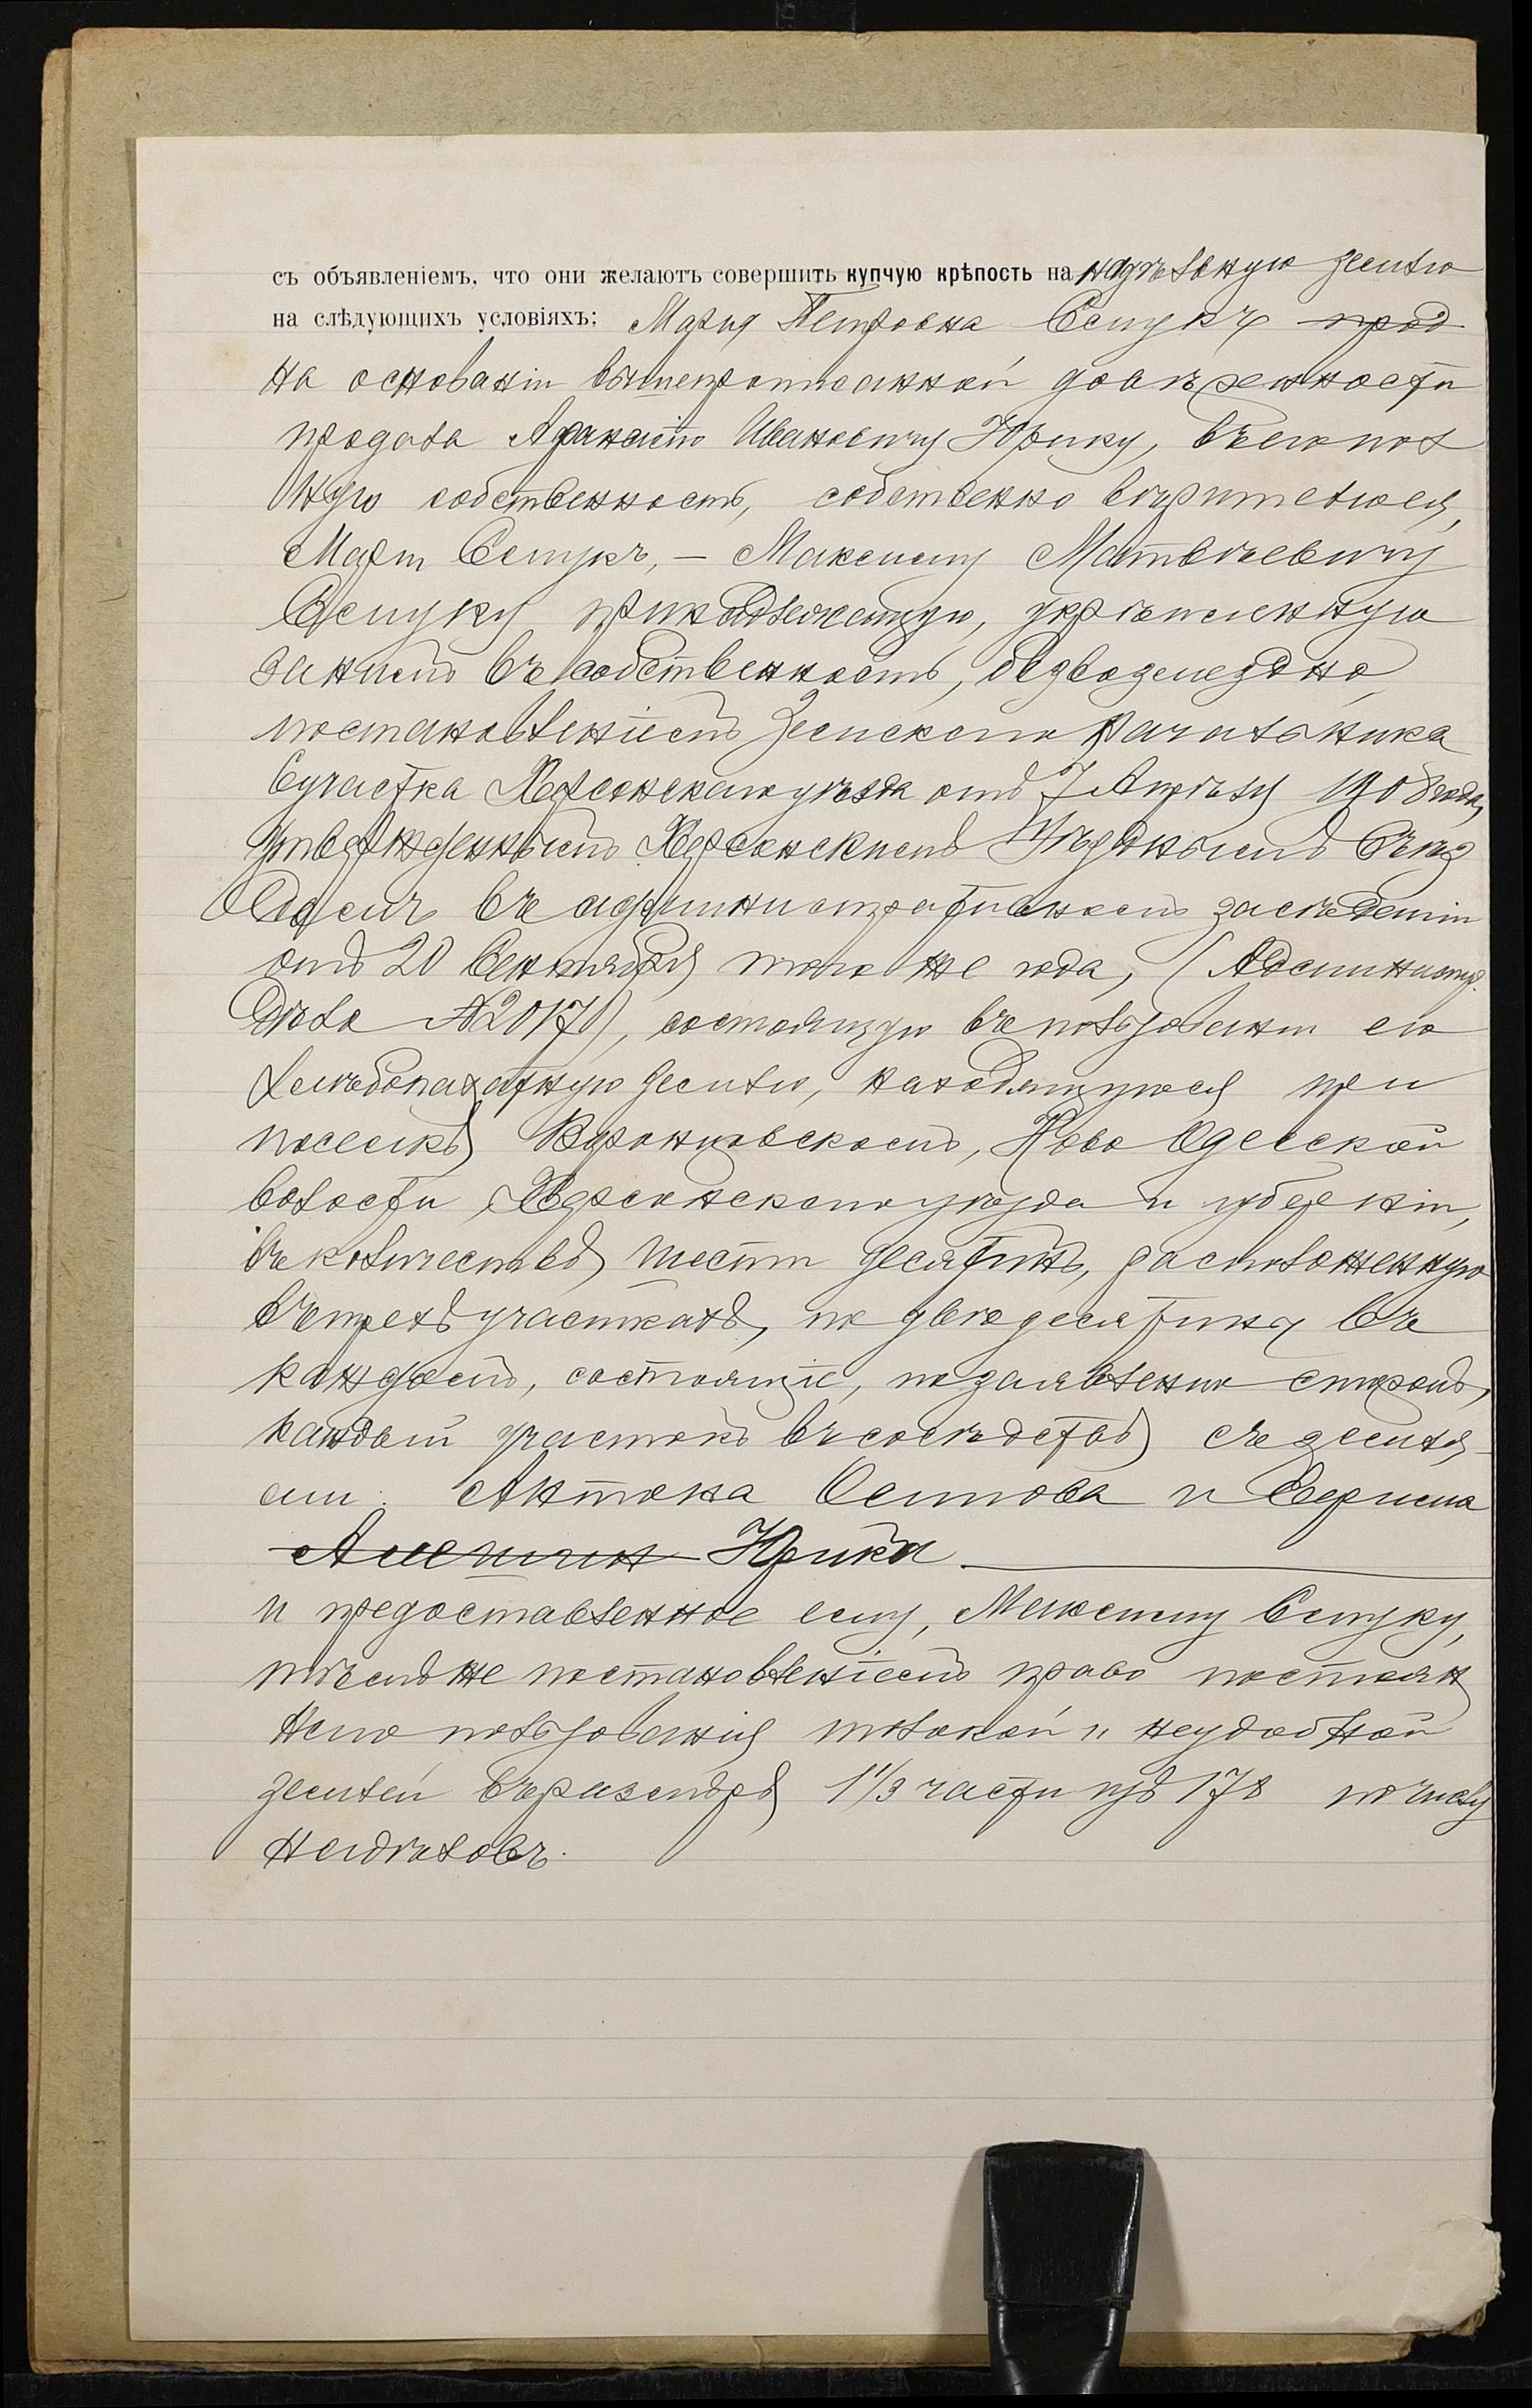 съ объявленіемъ, что они желаютъ совершить купчую крѣпость на надѣльную землю
на слѣдующихъ условіяхъ: Марія Петровна Семукъ прод
на основаніи вышепрописанной довѣренности
продала Афанасію Ивановичу Юрику, въ его пол
ную собственность, собственно вѣрителю ея,
Маріи Семукъ, — Максиму Матвѣевичу
Семуку принадлежащую, укрѣпленную
за нимъ въ собственность, безвозмездно,
постановленіемъ Земскаго Начальника
6 участка Херсонскаго уѣзда отъ 7 Апрѣля 1908 года,
утвержденнымъ Херсонскимъ Уѣзднымъ Съѣз
домъ въ административномъ засѣданіи
отъ 20 Сентября того же года, (Админинстр.
дѣло № 20170), состоящую въ пользованіи его
хлѣбопахатную землю, находящуюся при
поселкѣ Воронцовскомъ, Ново Одесской
волости Херсонскаго уѣзда и губерніи,
въ количествѣ шести десятинъ, расположенную
въ трехъ участкахъ, по двѣ десятины въ
каждомъ, состоящіе, по заявленію сторонъ,
каждый участокъ въ сосѣдствѣ съ землей
ми: Антона Осипова и
Юрика
и предоставленное ему, Максиму Семуку,
тѣмъ же постановленіемъ право постоян
наго пользованія толокой и неудобной
землей въ размѣрѣ 1 1/3 части изъ 178 по числу
надѣловъ.